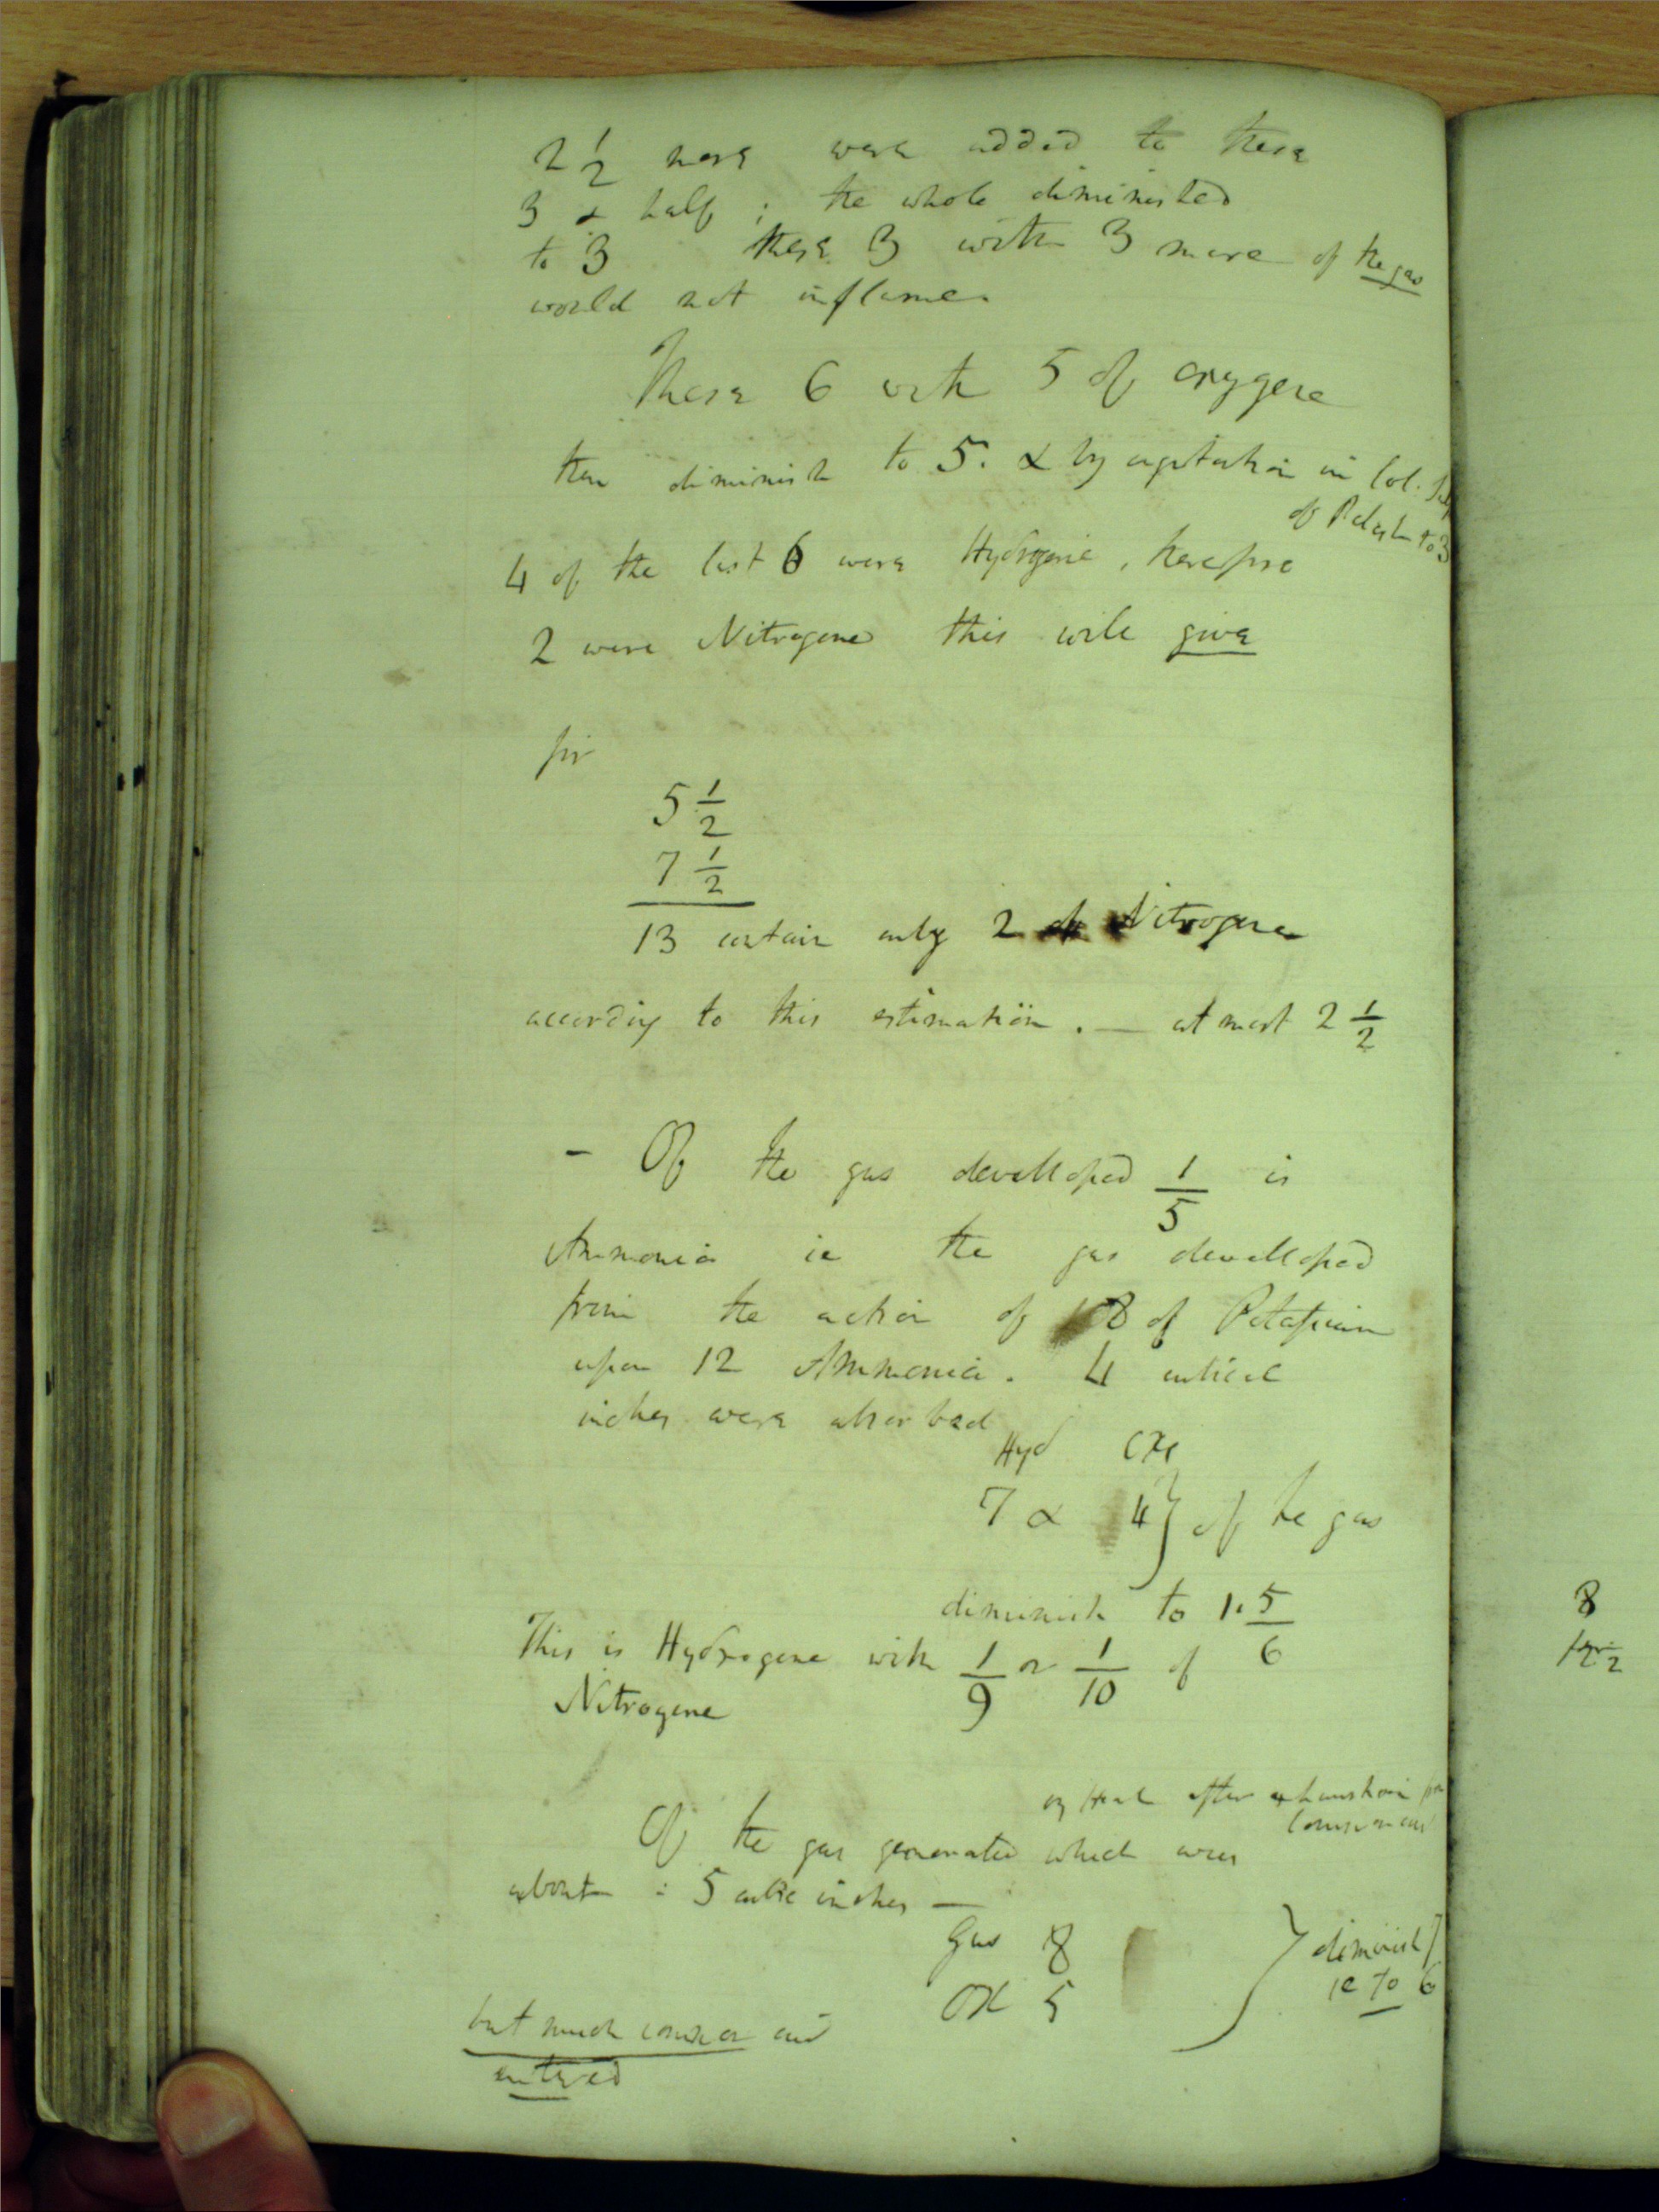 2 1/2 more were added to these
3 & half ; the whole diminished
to 3 these 3 with 3 more of the gas
would not inflame.
These 6 with 5 of oxygene
then diminish to 5. & by agitation in Sol.
of Potash to 3
4 of the last 6 were Hydrogene, therefore
2 were Nitrogene this will give
for
5 1/2
7 1/2
13 contain only 2 of Nitrogene
according to this estimation. — at most 2 1/2
- Of the gas developped 1/5 is
Ammonia ie the gas developped
from the action of 8 of Potassium
upon 12 Ammonia. 4 cubical
inches were absorbed
Hyd OX
7 & 4 } of the gas
diminish to 1. 5/6
This is Hydrogene with 1/9 or 1/10 of
Nitrogene
by Heat after exhaustion
Common air
Of the gas generated which was
about : 5 cubic inches —
Gas 8
OX 5
} diminish
ie to 6
but much common air
entered
8